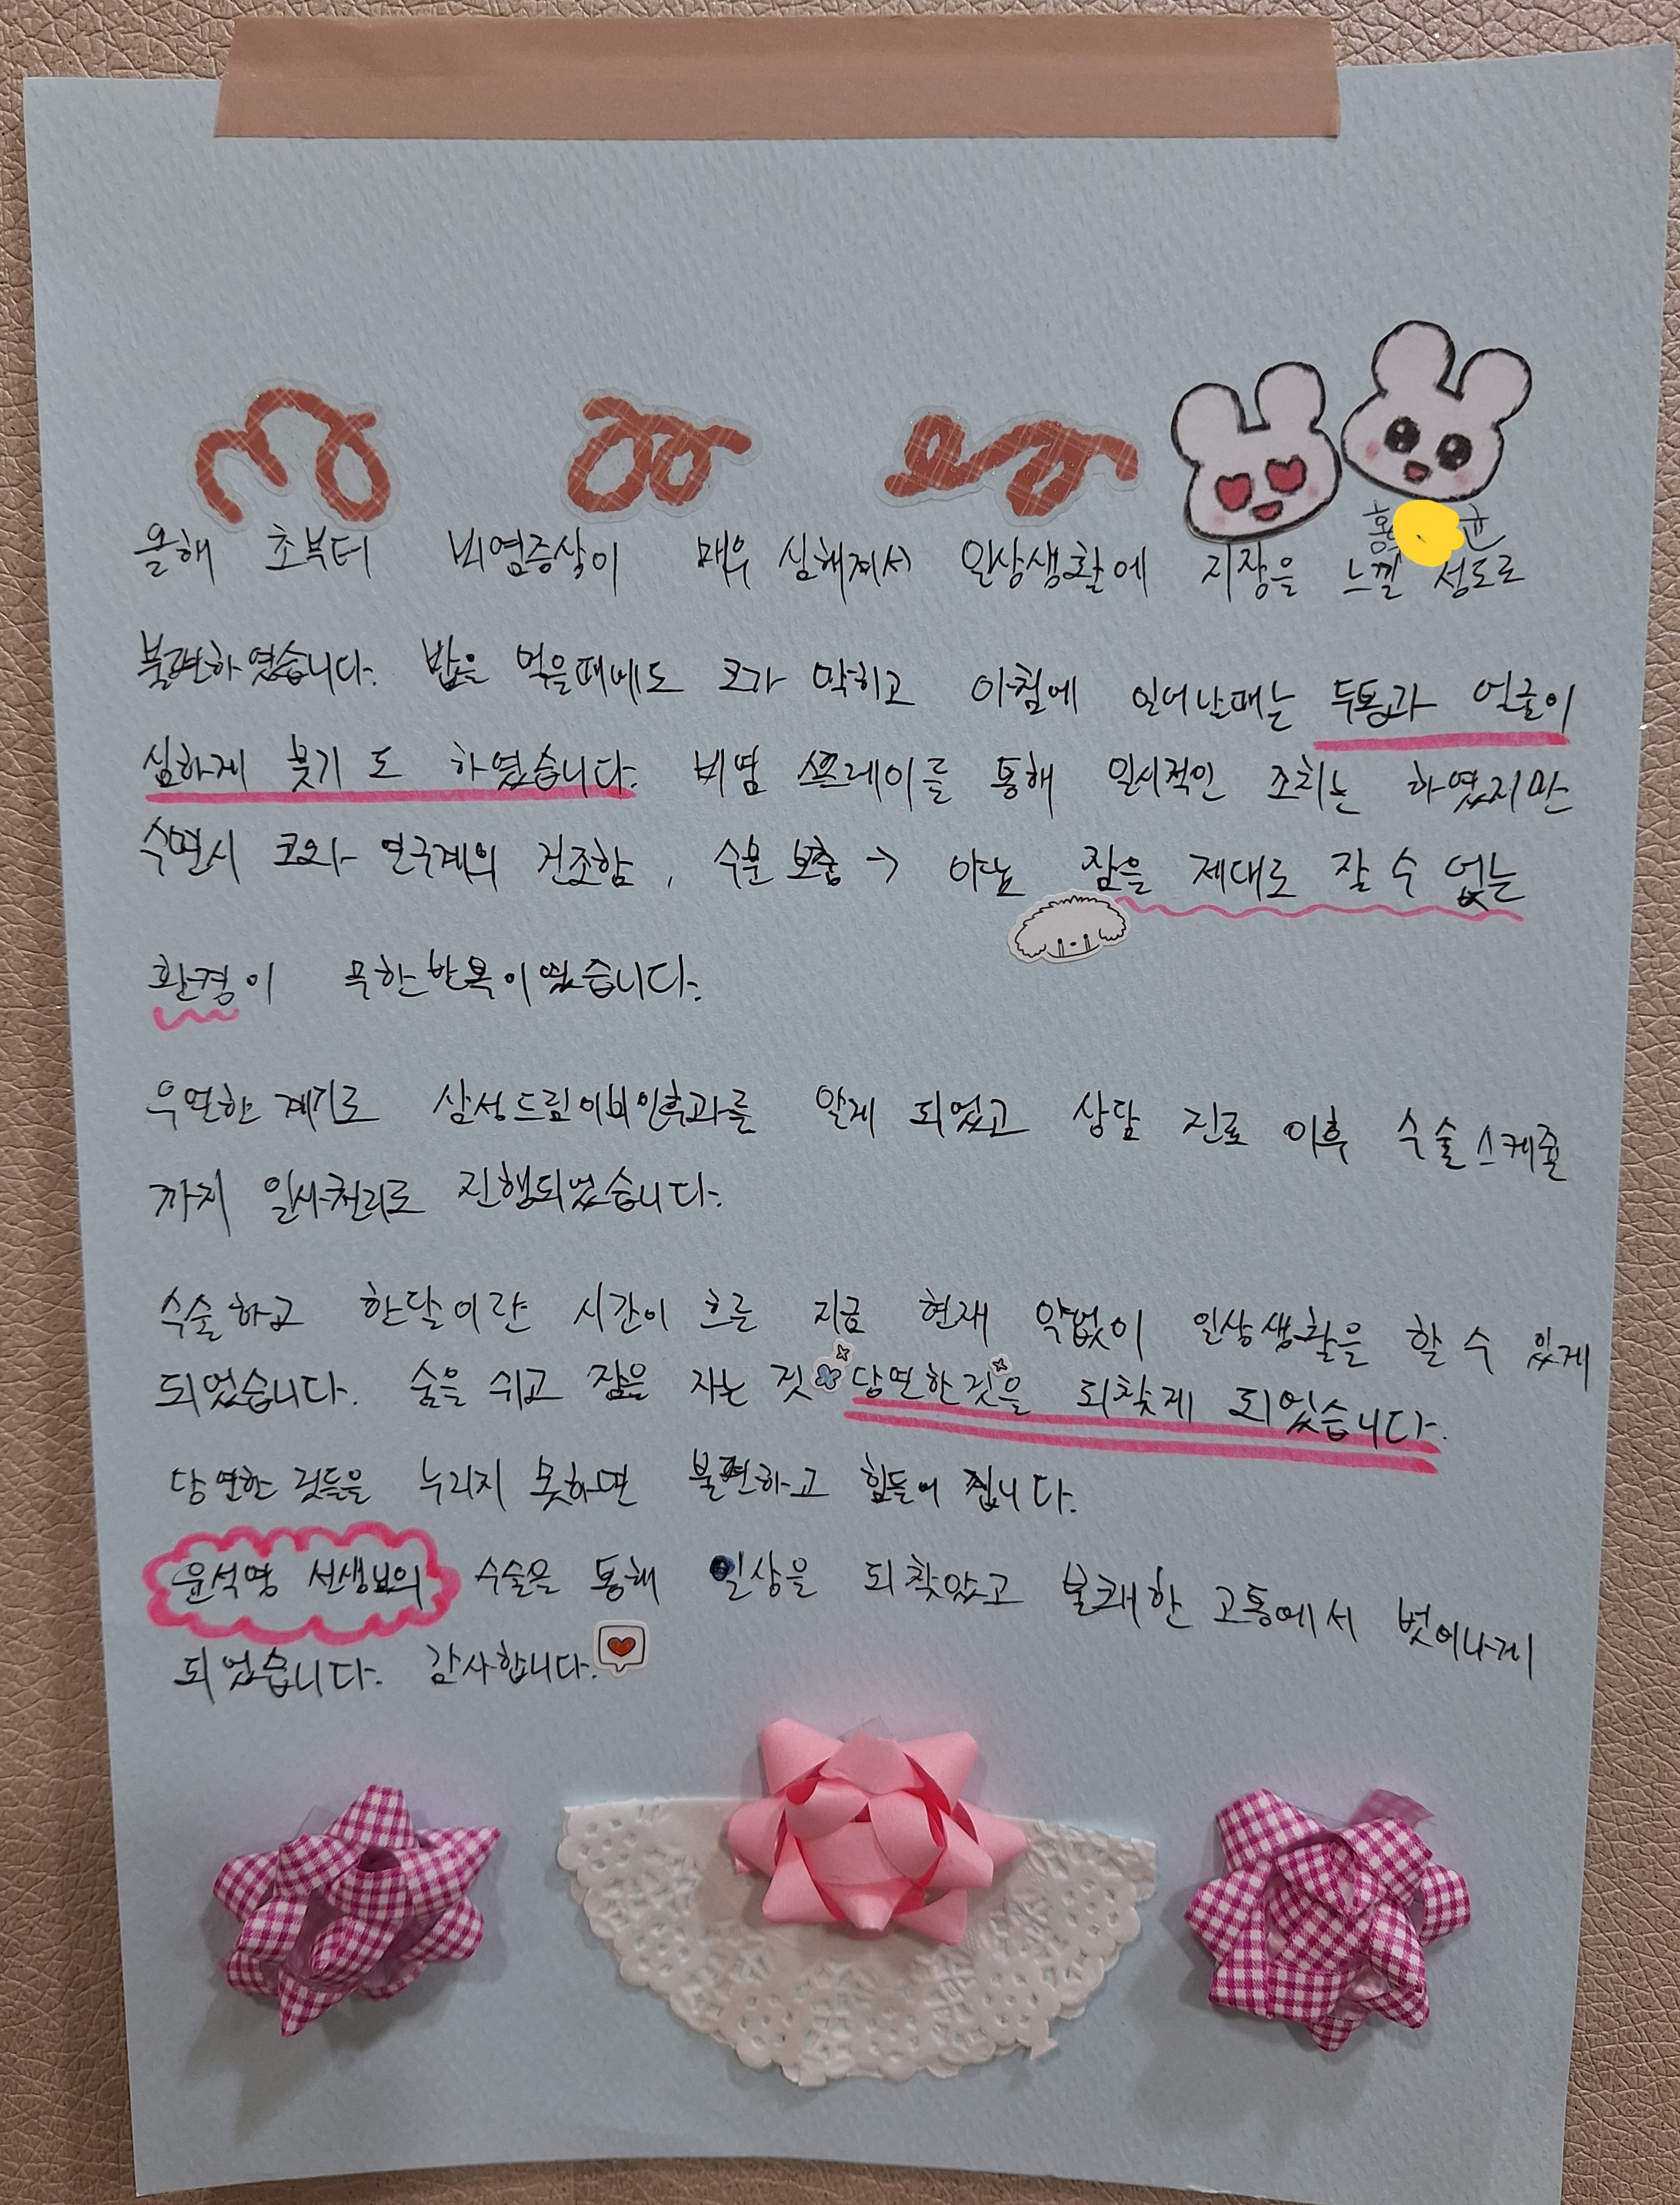 홍 균
올해 초부터 비염증상이 매우 심해져서 일상생활에 지장을 느낄 정도로
불편하였습니다. 밥을 먹을때에도 코가 막히고 아침에 일어난때는 두통과 얼굴이
심하게 붓기도 하였습니다. 비염 스프레이를 통해 일시적인 조치는 하였지만
수면시 코와 연구계의 건조함, 수분 보충 → 야뇨 잠을 제대로 잘 수 없는
환경이 무한반복이였습니다.
우연한 계기로 삼성드림이비인후과를 알게 되었고 상담 진료 이후 수술스케줄
까지 일사천리로 진행되었습니다.
수술하고 한달이란 시간이 흐른 지금 현재 약없이 일상생활을 할 수 있게
되었습니다. 숨을 쉬고 잠을 자는 것 당연한것을 되찾게 되었습니다.
당연한 것들을 누리지 못하면 불편하고 힘들어 집니다.
윤석영 선생님의 수술을 통해 일상을 되찾았고 불쾌한 고통에서 벗어나게
되었습니다. 감사합니다.